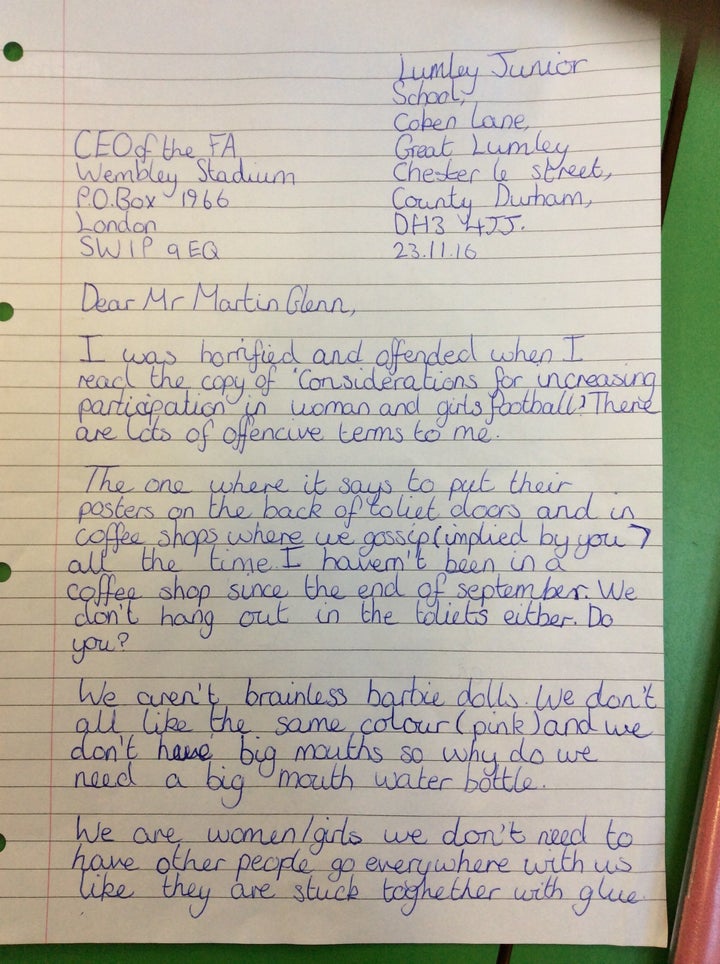 Lumley Junior
School,
Coben Lane,
Great Lumley
Chester le street,
County Durham,
DH3 4JJ.
23.11.16
CEO of the FA
Wembley Stadium
P.O.Box 1966
London
SW1P 9EQ
Dear Mr Martin Glenn,
I was horrified and offended when I
read the copy of 'Considerations for increasing
participation in woman and girls football'? There
are lots of offencive terms to me.
The one where it says to put their
posters on the back of toliet doors and in
coffee shops where we gossip (implied by you)
all the time. I haven't been in a
coffee shop since the end of september. We
don't hang out in the toliets either. Do
you?
We aren't brainless barbie dolls. We don't
all like the same colour (pink) and we
don't have big mouths so why do we
need a big mouth water bottle.
We are women/girls we don't need to
have other people go everywhere with us
like they are stuck toghether with glue.